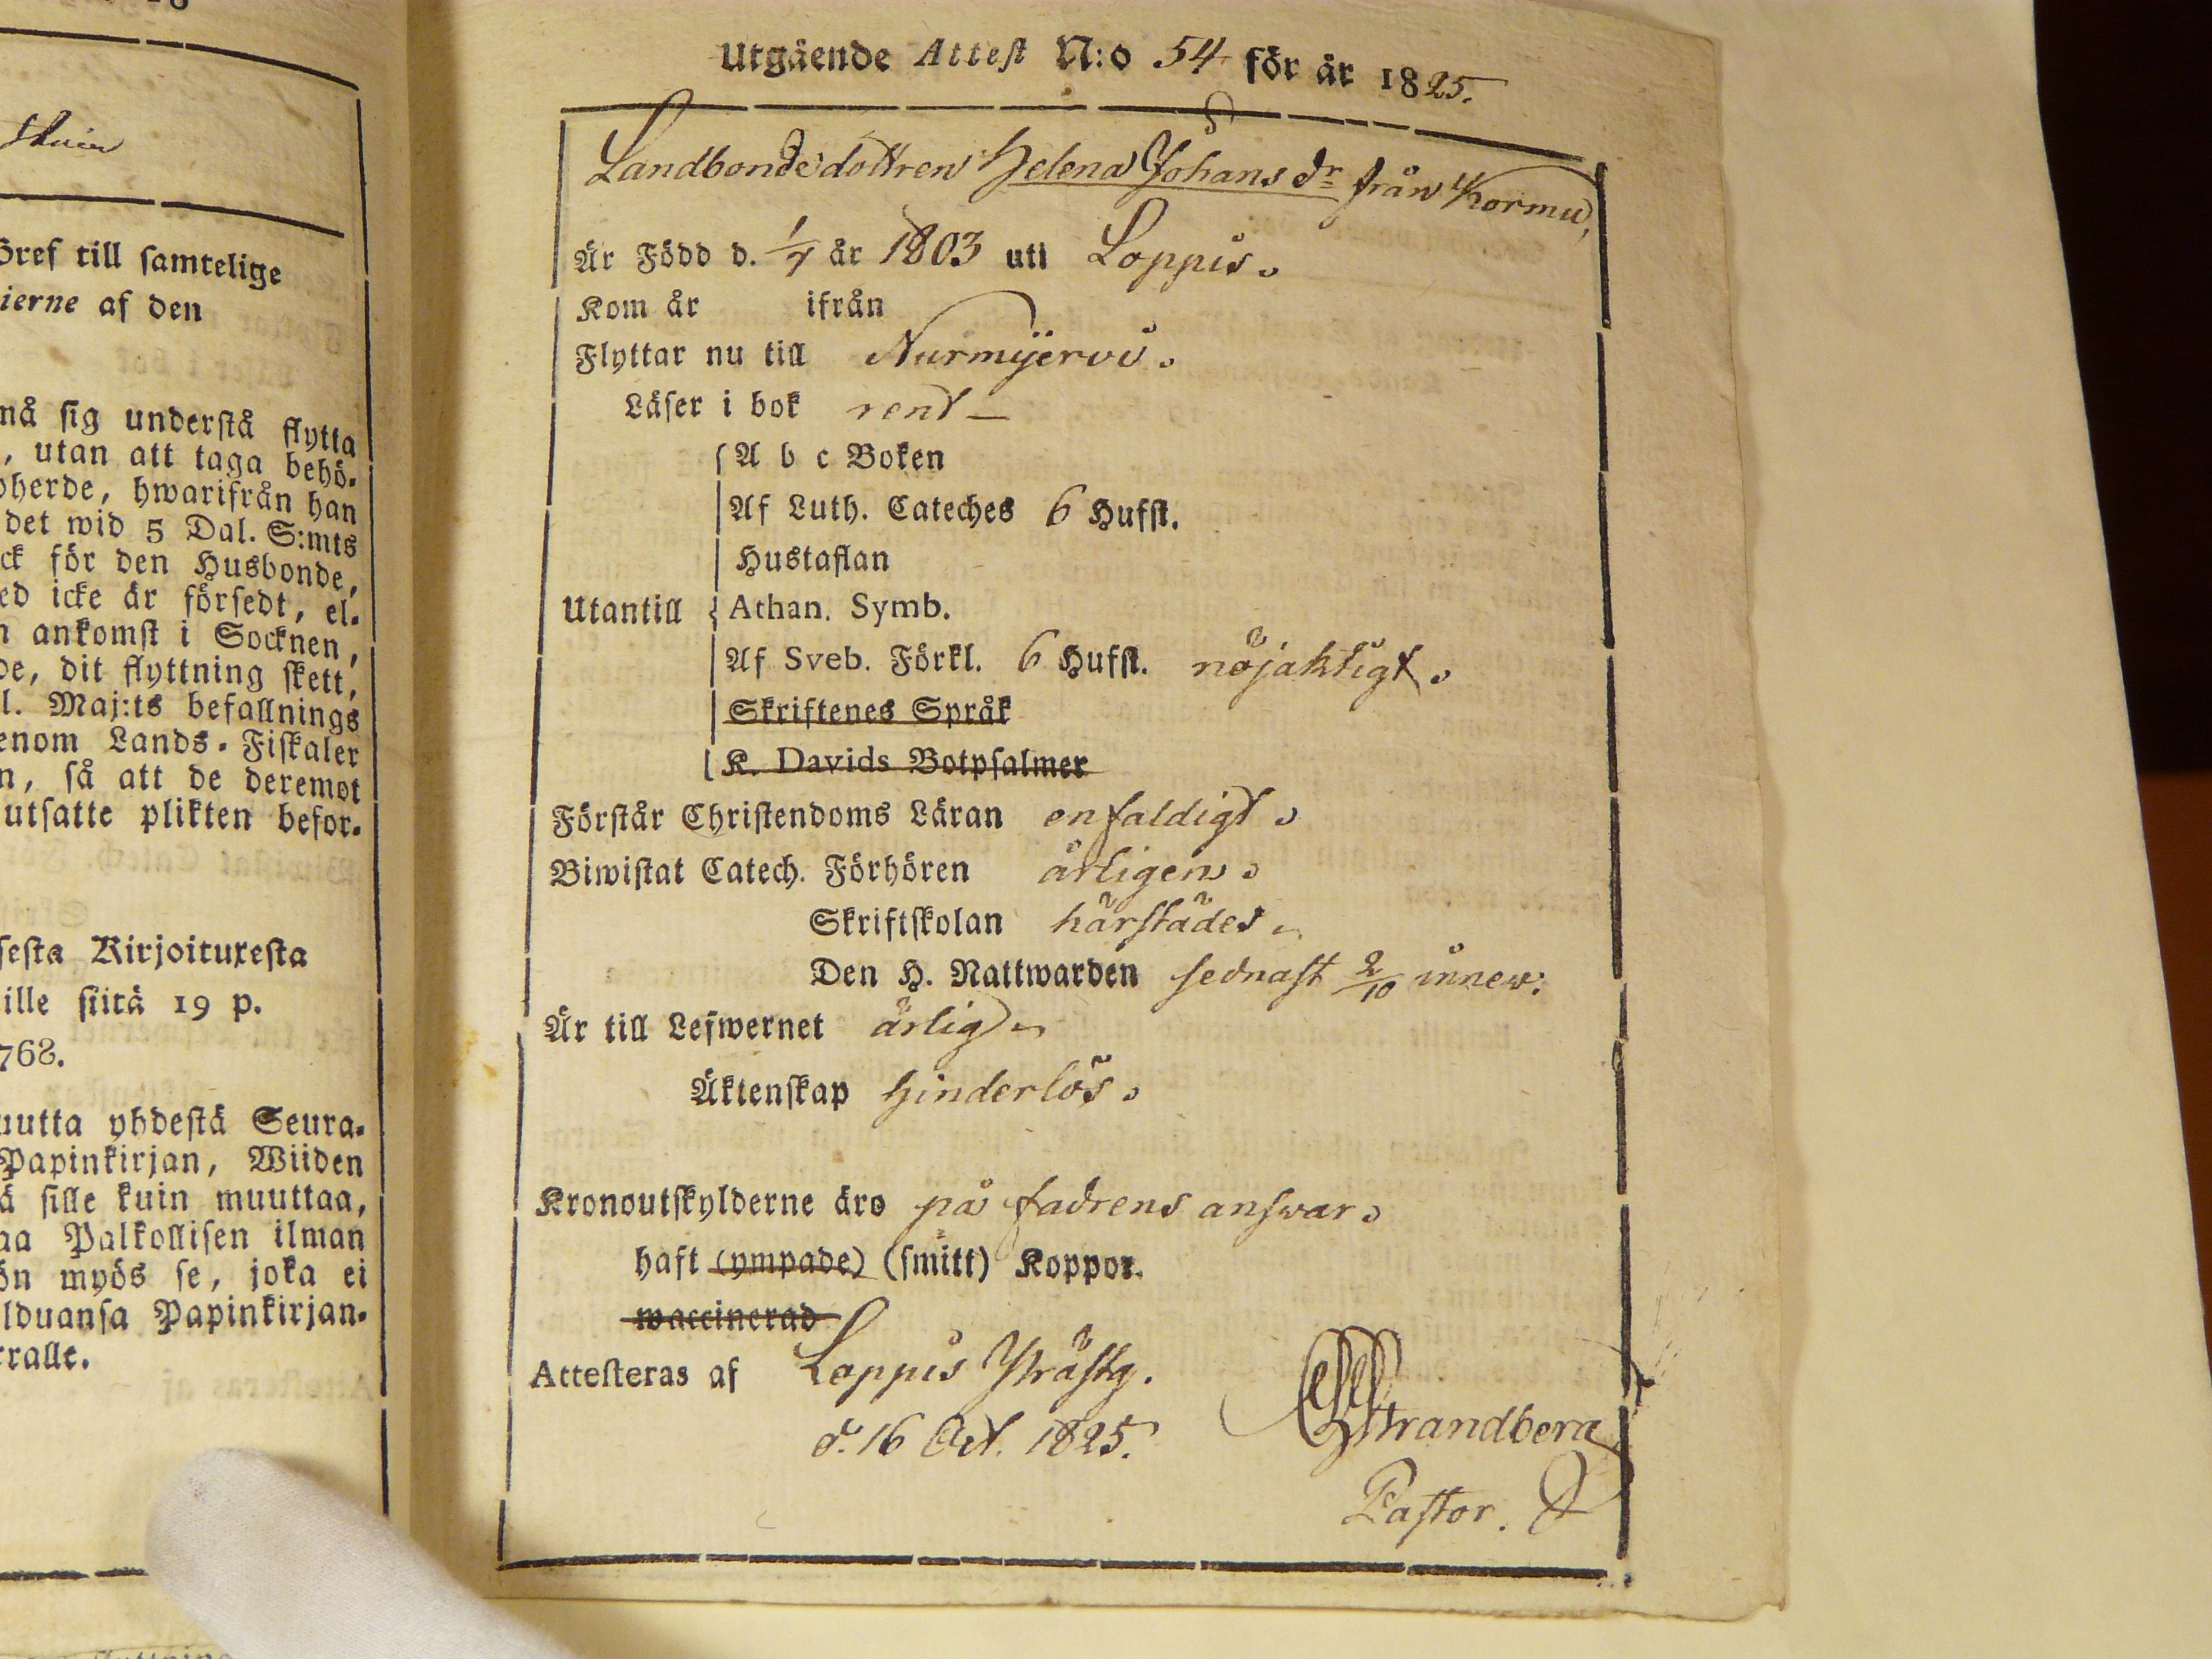 Bref till samtelige
ierne af den
må sig understå flytta
, utan att taga behö-
herde, hwarifrån han
det wid 5 Dal. S:mts
ck för den Husbonde,
ed icke är försedt, el-
n ankomst i Socknen,
de, dit flyttning skett,
l. Maj:ts befallnings
enom Lands-Fiskaler
n, så att de deremot
utsatte plikten befor-
sesta Kirjoituxesta
ille siitä 19 p.
768.
uutta yhdestä Seura-
Papinkirjan, Wiiden
ä sille kuin muuttaa,
aa Palkollisen ilman
ön myös se, joka ei
lduansa Papinkirjan-
ralle.
Utgående Attest N:o 54 för år 1825.
Landbondedottren Helena Johans dr från Kormu,
Är Född d. 1/7 år 1803 uti Loppis.
Kom år ifrån
Flyttar nu till Nurmijervi.
Läser i bok rent
A b c Boken
Af Luth. Cateches 6 Hufst.
Hustaflan
Utantill Athan. Symb.
Af Sveb. Förkl. 6 Hufst. nöjaktigt.
Skriftenes Språk
K. Davids Botpsalmer
Förstår Christendoms Läran enfaldigt.
Biwistat Catech. Förhören årligen.
Skriftskolan härstädes
Den H. Nattwarden sednast 2/10 innew.
Är till Lefwernet ärlig
Äktenskap hinderlös.
Kronoutskylderne äro på fadrens answar.
haft (ympade) (smitt) Koppor.
waccinerad
Attesteras af Loppis Prästg.
d. 16 Oct. 1825. Strandberg
Pastor.